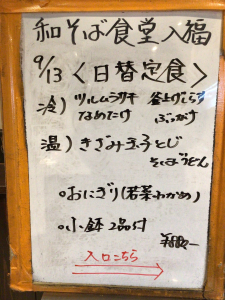 和そば食堂入福
9/13 〈日替定食〉
冷) ツルムラサキ 釜上げしらす
なめたけ ぶっかけ
温) きざみ玉子とじ
そばorうどん
○おにぎり(若菜わかめ)
○小鉢2品付
入口こちら